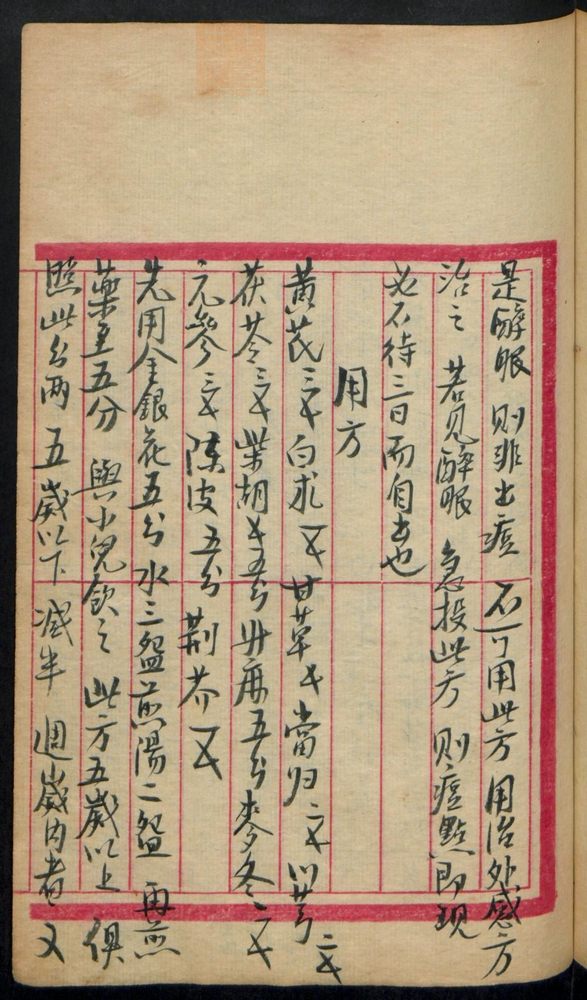 是醉眼 則非出痘 不可用此方 用治外感方
治之 若見醉眼 急投此方 則痘點即現
必不待三日而自出也
用方
黄芪三錢 白术一錢 甘草一錢 當归二錢 川芎二錢
茯苓三錢 柴胡一錢五分 升麻五分 麥冬二錢
元參三錢 陳皮五分 荆芥一錢
先用金銀花五分 水三盌 煎湯二盌 再煎
藥至五分 與小兒飲之 此方五歲以上 俱
照此分兩 五歲以下 减半 週歲内者 又